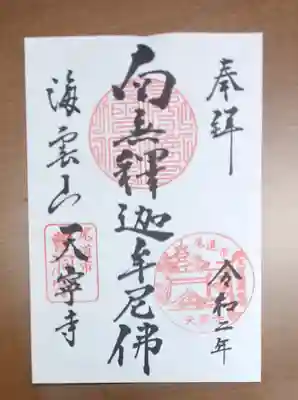 奉拝
令和二年
南無釋迦牟尼佛
海雲山
天寧寺
尾道市